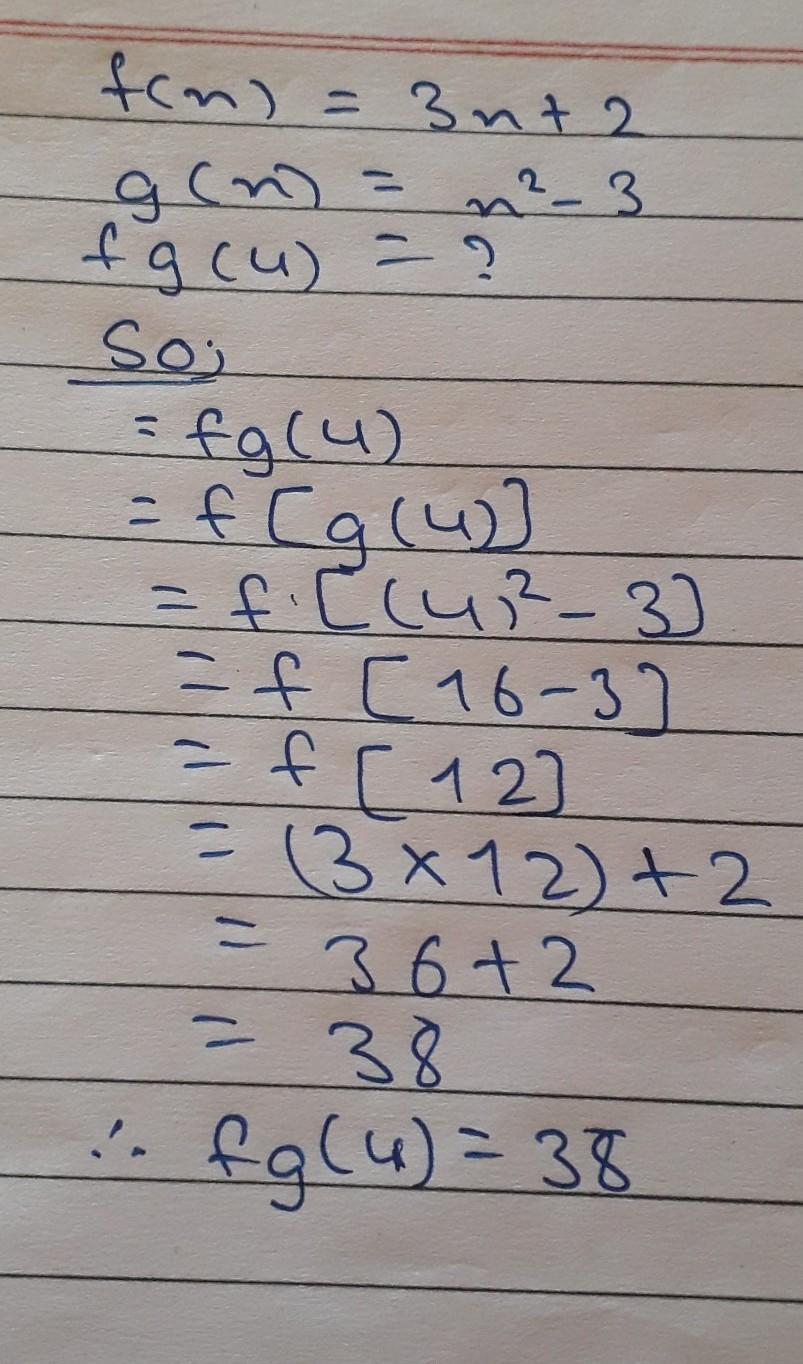 f(n) = 3n + 2
g(n) = n² - 3
fg(4) = ?
So;
= fg(4)
= f[g(4)]
= f.[(4)² - 3]
= f [16-3]
= f [12]
= (3 × 12) + 2
= 36 + 2
= 38
∴ fg(4) = 38